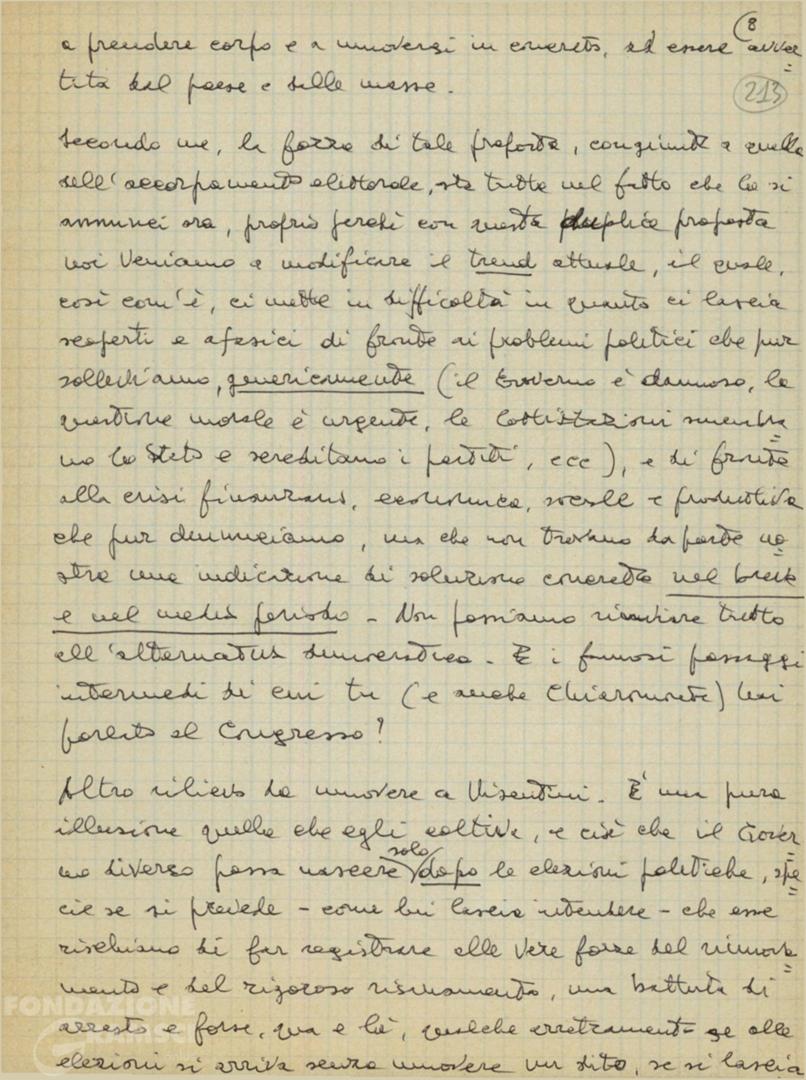 8
a prendere corpo e a muoversi in concreto, ed essere avver=
tita dal paese e dalle masse.
213
Secondo me, la forza di tale proposta, congiunta a quella
dell'accorpamento elettorale, sta tutta nel fatto che la si
annunci ora, proprio perché con questa duplice proposta
noi veniamo a modificare il trend attuale, il quale,
così com'è, ci mette in difficoltà in quanto ci lascia
scoperti e afasici di fronte ai problemi politici che pur
solleviamo, genericamente (il Governo è dannoso, la
questione morale è urgente, le lottizzazioni smembra=
no lo Stato e screditano i partiti, ecc), e di fronte
alla crisi finanziaria, economica, sociale e produttiva
che pur denunciamo, ma che non trovano da parte no=
stra una indicazione di soluzione concreta nel breve
e nel medio periodo. Non possiamo rinviare tutto
all'alternativa democratica. E i famosi passaggi
intermedi di cui tu (e anche Chiaromonte) hai
parlato al Congresso?
Altro rilievo da muovere a Visentini. È una pura
illusione quella che egli coltiva, e cioè che il Gover=
no diverso possa nascere solo dopo le elezioni politiche, spe=
cie se si prevede - come lui lascia intendere - che esse
rischiano di far registrare alle vere forze del rinnova=
mento e del rigoroso risanamento, una battuta di
arresto e forse, qua e là, qualche arretramento se alle
elezioni si arriva senza muovere un dito, se si lascia
FONDAZIONE
GRAMSCI